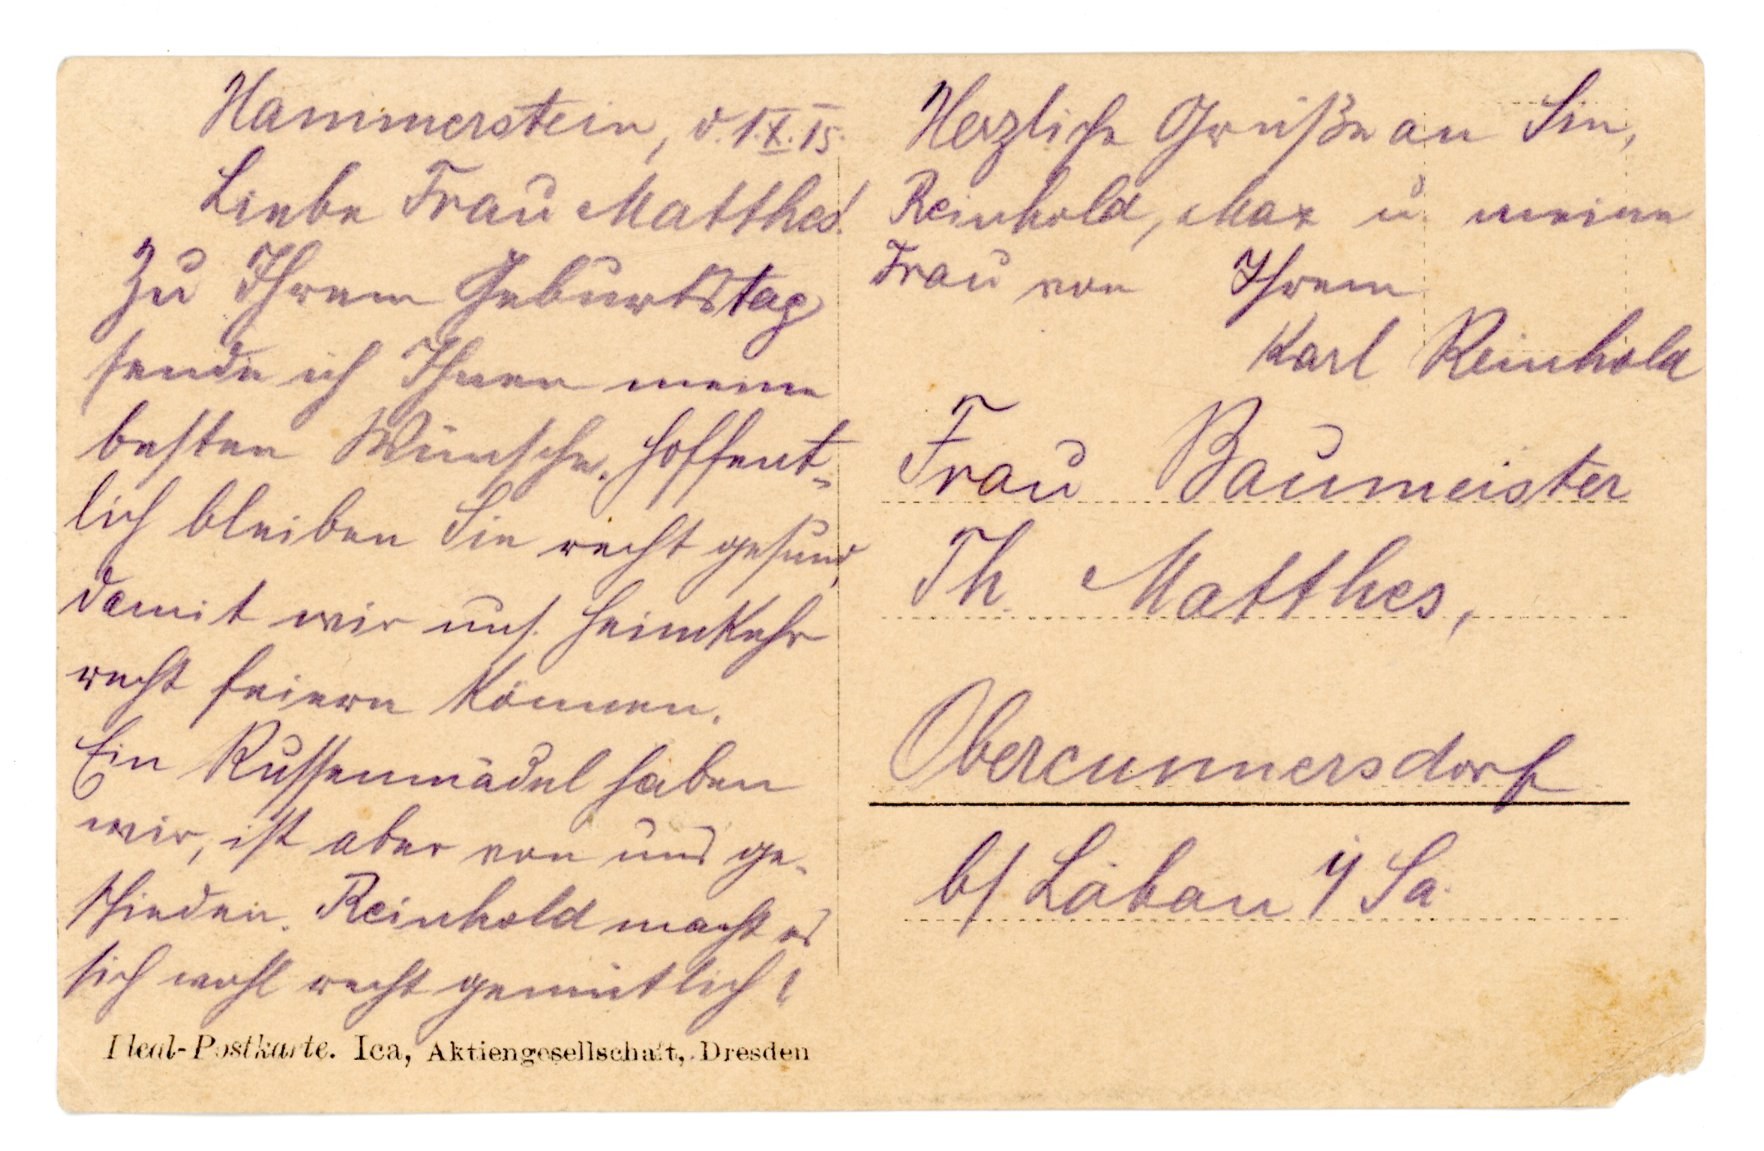 Hammerstein, d. 1.X.15.
Liebe Frau Matthes!
Zu Ihrem Geburtstag
sende ich Ihnen meine
besten Wünsche. Hoffent-
lich bleiben Sie recht gesund,
damit wir uns. Heimkehr
recht feiern können.
Ein Russenmädel haben
wir, ist aber von uns ge-
schieden. Reinhold macht es
sich wohl recht gemütlich!
Herzliche Grüße an Sie,
Reinhold, Max u. meine
Frau von Ihrem
Karl Reinhold
Frau Baumeister
Th. Matthes,
Obercunnersdorf
b/ Löbau i/ Sa.
Ideal-Postkarte. Ica, Aktiengesellschaft, Dresden